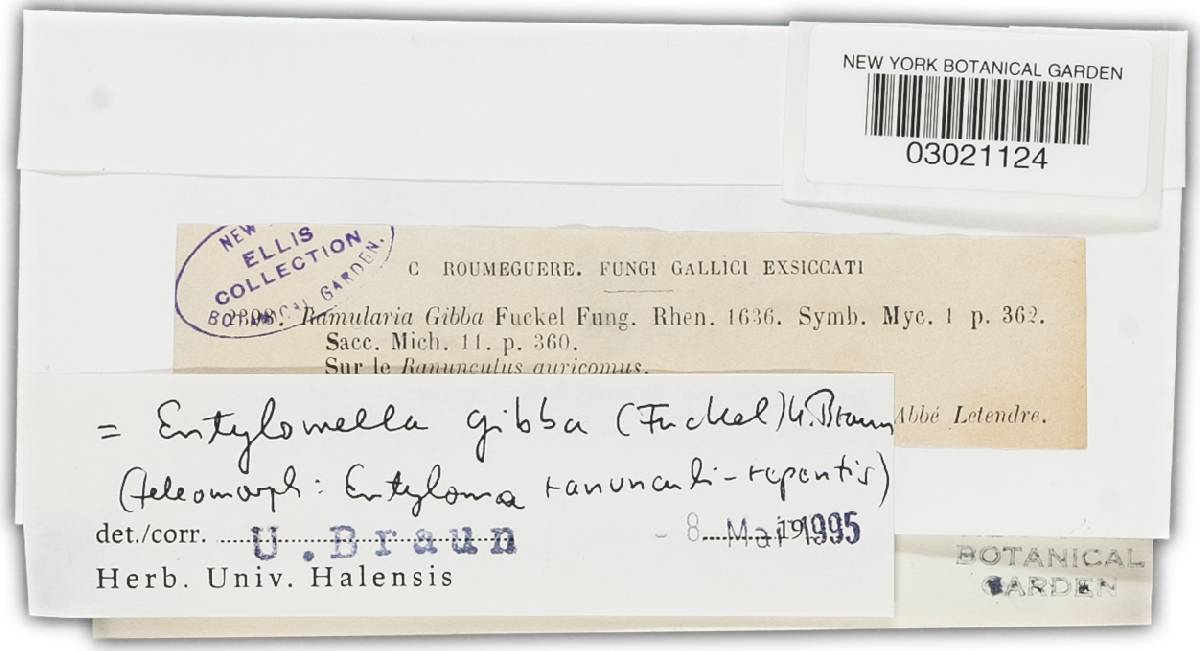 NEW YORK BOTANICAL GARDEN
03021124
NEW
ELLIS
COLLECTION
BOTANICAL GARDEN.
C ROUMEGUERE. FUNGI GALLICI EXSICCATI
Ramularia Gibba Fuckel Fung. Rhen. 1636. Symb. Myc. 1 p. 362.
Sacc. Mich. 11. p. 360.
Sur le Ranunculus auricomus.
Abbé Letendre.
= Entylomella gibba (Fuckel) U. Braun
(teleomorph: Entyloma ranunculi-repentis)
det./corr. U. Braun - 8. Mai 1995
Herb. Univ. Halensis
BOTANICAL
GARDEN